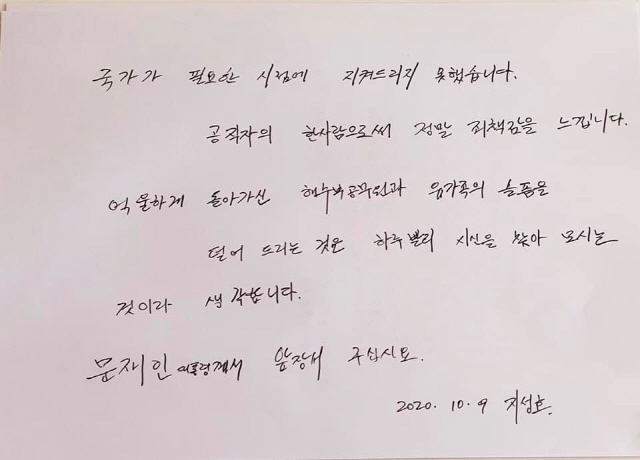 국가가 필요한 시점에 지켜드리지 못했습니다.
공직자의 한사람으로써 정말 죄책감을 느낍니다.
억울하게 돌아가신 해수부공무원과 유가족의 슬픔을
덜어 드리는 것은 하루 빨리 시신을 찾아 모시는
것이라 생각합니다.
문재인 대통령께서 앞장서 주십시오.
2020. 10. 9 지성호.